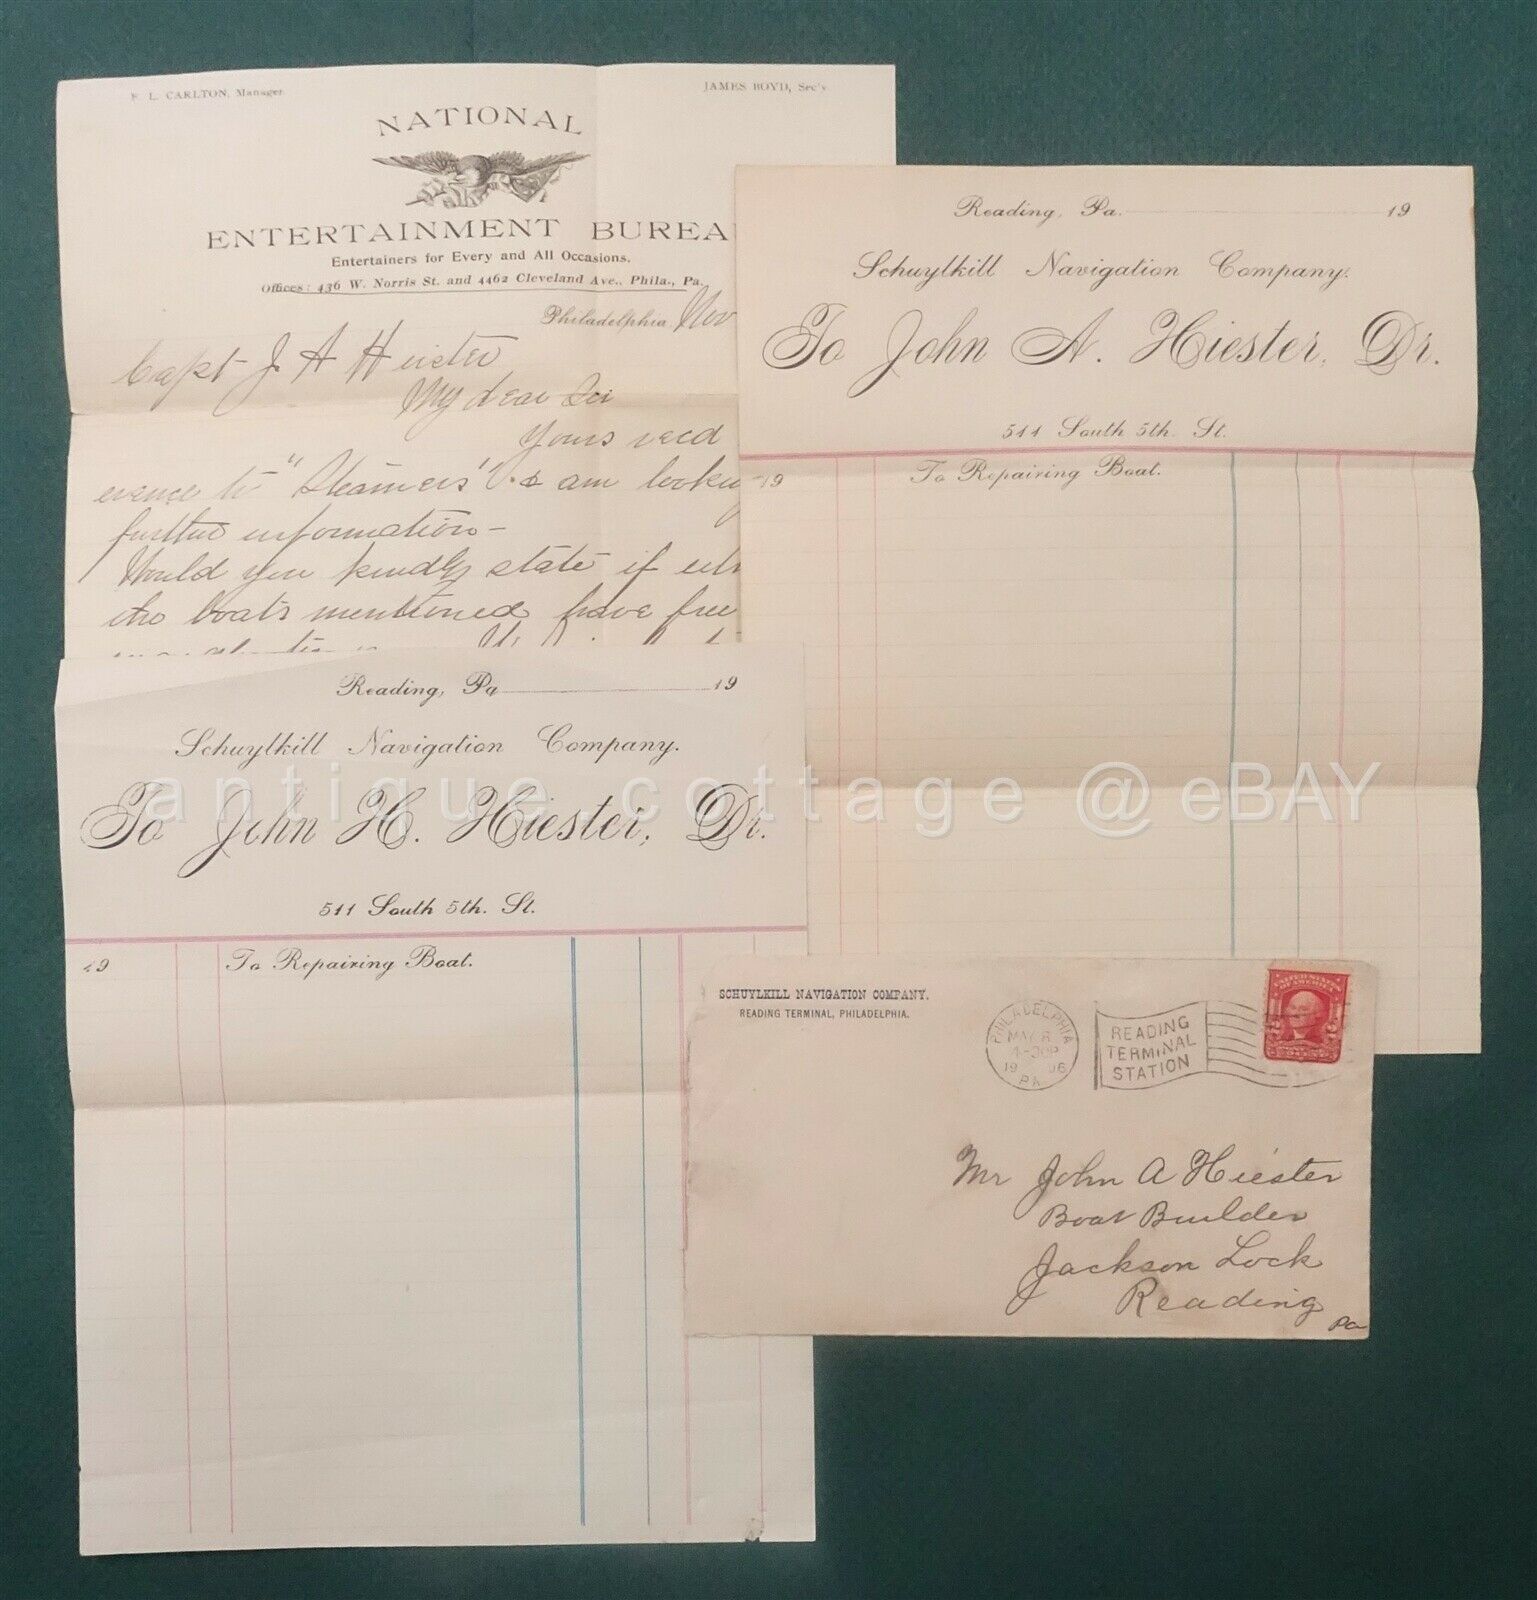 F. L. CARLTON, Manager.
JAMES BOYD, Sec'y
NATIONAL
ENTERTAINMENT BUREA
Entertainers for Every and All Occasions.
Offices: 436 W. Norris St. and 4462 Cleveland Ave., Phila., Pa.
Philadelphia, Nov
Capt J A Hiester
My dear Sir
Yours recd
erence to "Steamers" & am looking
further information -
Would you kindly state if
the boats mentioned have free
Reading, Pa. 19
Schuylkill Navigation Company.
To John A. Hiester, Dr.
511 South 5th. St.
19 To Repairing Boat.
Reading, Pa 19
Schuylkill Navigation Company.
To John H. Hiester, Dr.
511 South 5th. St.
19 To Repairing Boat.
antique cottage @ eBAY
SCHUYLKILL NAVIGATION COMPANY.
READING TERMINAL, PHILADELPHIA.
PHILADELPHIA
MAY 8
4-30P
1906
PA
READING
TERMINAL
STATION
UNITED STATES
OF AMERICA
Mr John A Hiester
Boat Builder
Jackson Lock
Reading
Pa